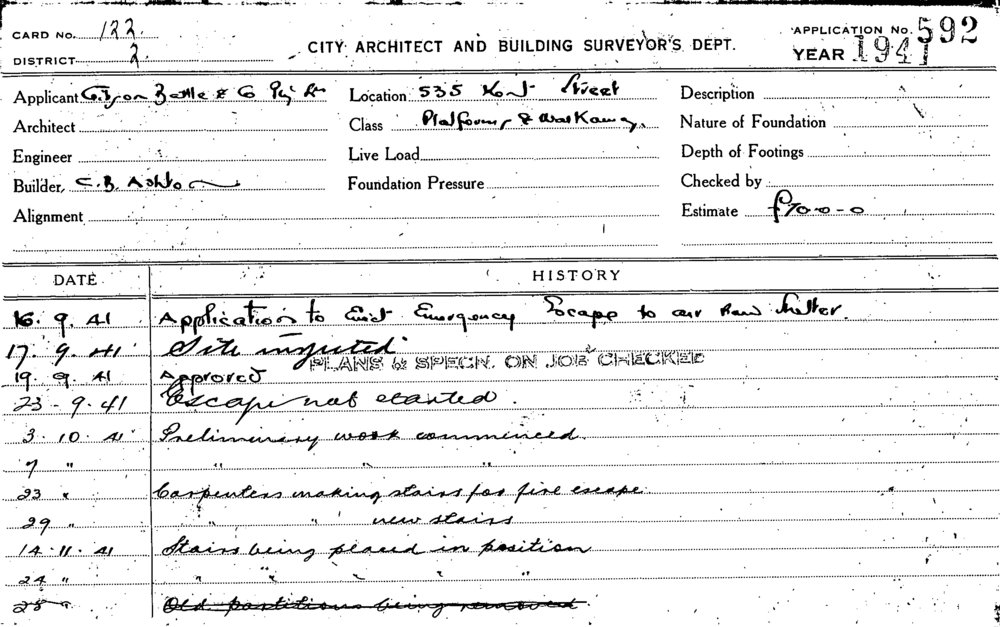 CARD No. 122.
DISTRICT 2.
CITY ARCHITECT AND BUILDING SURVEYOR'S DEPT.
APPLICATION No. 592
YEAR 1941
Applicant & Co Pty Ltd
Location 535 Kent Street
Description
Architect
Class Platforms & Walkaway.
Nature of Foundation
Engineer
Live Load
Depth of Footings
Builder, C. B. Ashton
Foundation Pressure
Checked by
Alignment
Estimate £70-0-0
DATE
HISTORY
16. 9. 41 Application to Erect Emergency Escape to air Raid Shelter.
17. 9. 41 Site inspected
PLANS & SPECN. ON JOB CHECKED
19. 9. 41 Approved
23 - 9. 41 Escape not started.
3. 10. 41 Preliminary work commenced.
7 " " " "
23 " Carpenters making stairs for fire escape
29 " " " new stairs
14. 11. 41 Stairs being placed in position
24 " " " " " "
25 " Old partitions being removed.